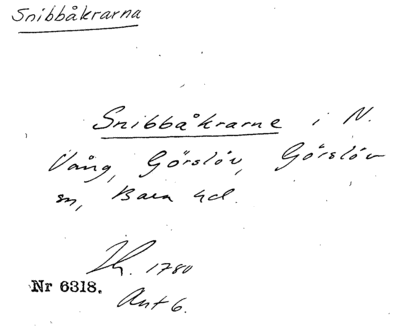 Snibbåkrarna
Snibbåkrarne i N.
Vång, Görslöv, Görslöv
sn, Bara hd.
Lh. 1780
Nr 6318.
Akt 6.